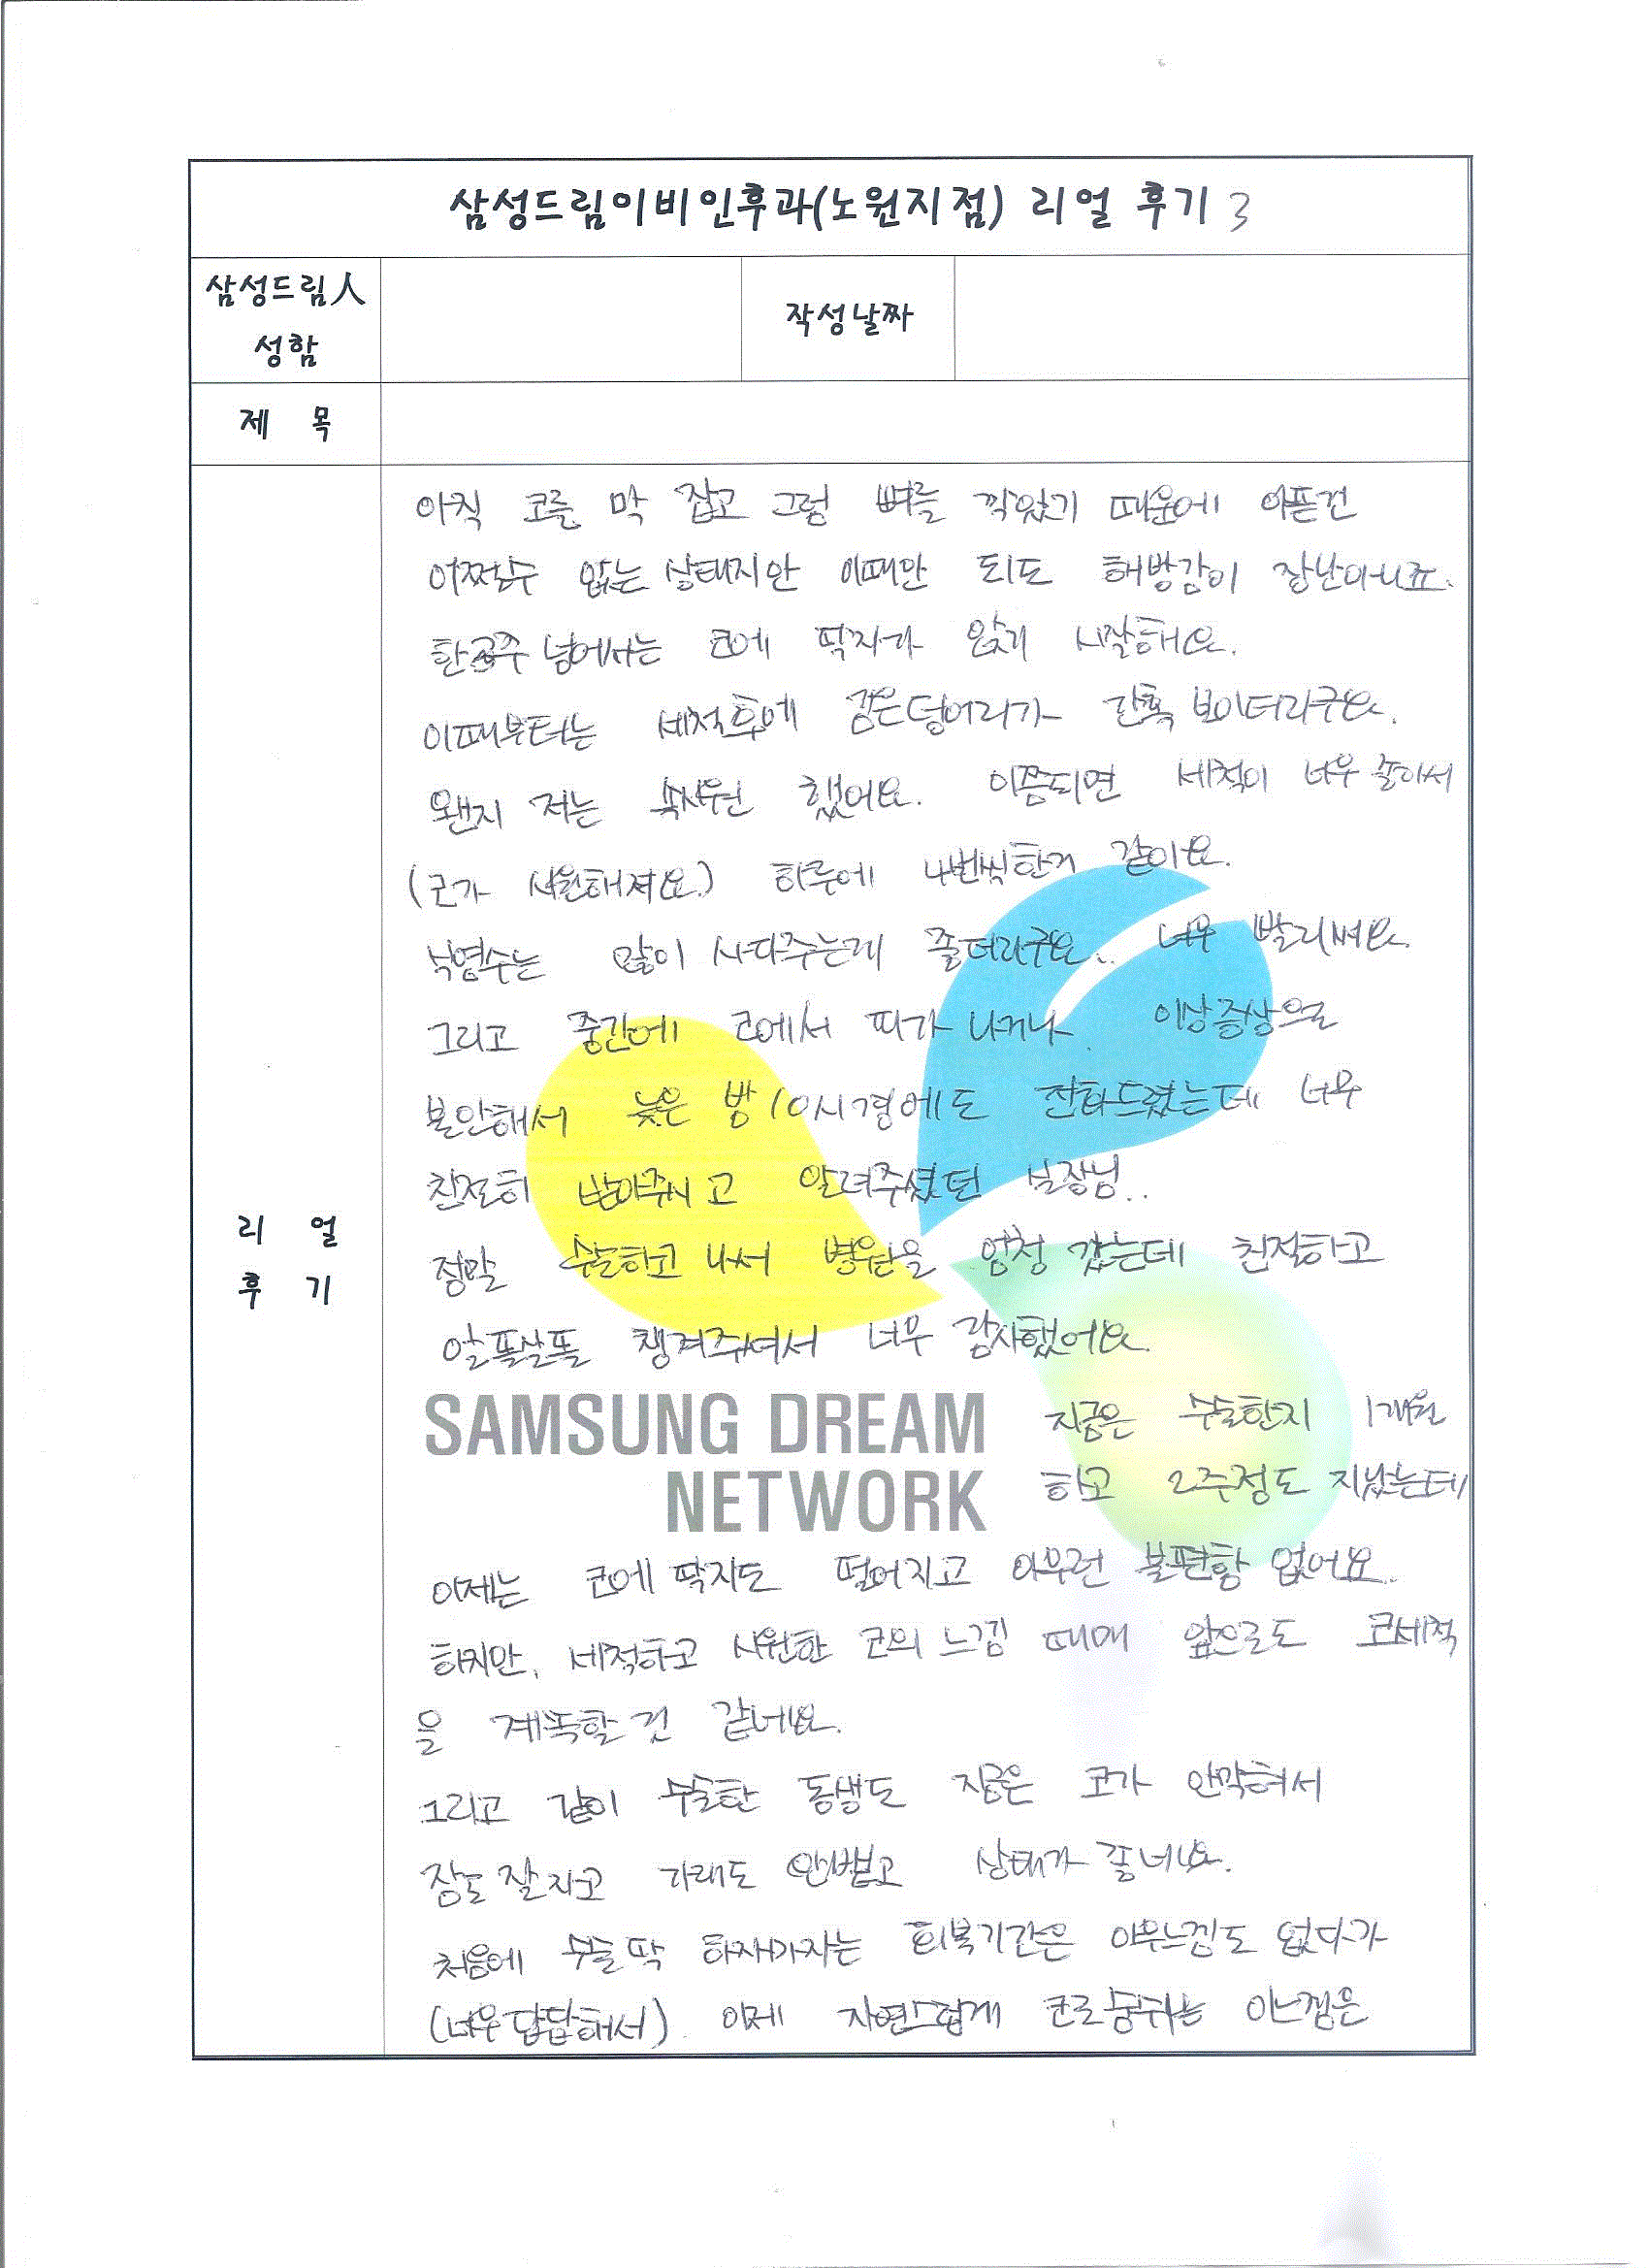 삼성드림이비인후과(노원지점) 리얼 후기 3
삼성드림人
성함
작성날짜
제 목
리 얼
후 기
아직 코를 막 잡고 그럼 뼈를 깍았기 때문에 아픈건
어쩔수 없는 상태지만 이때만 되도 해방감이 장난아니죠.
한 주 넘어서는 코에 딱지가 앉기 시작해요.
이때부터는 세척후에 검은덩어리가 간혹 보이더라구요.
왠지 저는 속시원 했어요. 이쯤되면 세척이 너무 좋아서
(코가 시원해져요.) 하루에 4번씩한거 같아요.
식염수는 많이 사다주는게 좋더라구요.. 너무 빨리써요.
그리고 중간에 코에서 피가 나거나 이상증상으로
불안해서 늦은 밤 10시경에도 전화드렸는데 너무
친절히 받아주시고 알려주셨던 실장님..
정말 수술하고 나서 병원을 엄청 갔는데 친절하고
알뜰살뜰 챙겨주셔서 너무 감사했어요.
SAMSUNG DREAM
NETWORK
지금은 수술한지 1개월
하고 2주정도 지났는데
이제는 코에 딱지도 떨어지고 아무런 불편함 없어요.
하지만, 세척하고 시원한 코의 느낌 때매 앞으로도 코세척
을 계속할 것 같네요.
그리고 같이 수술한 동생도 지금은 코가 안막혀서
잠도 잘자고 가래도 안뱉고 상태가 좋네요.
처음에 수술 딱 하자마자는 회복기간은 아무느낌도 없다가
(너무답답해서) 이제 자연스럽게 코로숨쉬는 이느낌은